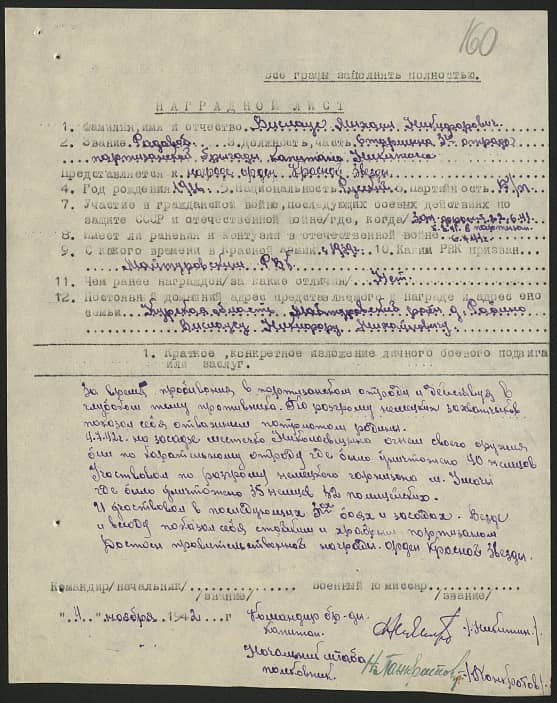 160
Все графы заполнять полностью.
НАГРАДНОЙ ЛИСТ
1. Фамилия, имя и отчество Михаил Никифорович
2. Звание Рядовой 3. Должность, часть Старшина 3го отряда
партизанской бригады капитана Никитина
Представляется к награде орден Красной Звезды
4. Год рождения 5. Национальность Русский 6. Партийность Б/п
7. Участие в гражданской войне, последующих боевых действиях по
защите СССР и отечественной войне/где, когда/ Зап. фронт
8. Имеет ли ранения и контузии в отечественной войне
9. С какого времени в Красной Армии с 1939г. 10. Каким РВК призван
РВК
11. Чем ранее награжден/за какие отличия/ Нет.
12. Постоянный домашний адрес представляемого к награде и адрес его
семьи Курская область район д.
Никифору
1. Краткое, конкретное изложение личного боевого подвига
или заслуг.
За время пребывания в партизанском отряде и действуя в
глубоком тылу противника. По разгрому немецких захватчиков
показал себя отважным патриотом родины.
на засаде местечко Николаевщина огнем своего оружия
бил по карательному отряду где было уничтожено 90 немцев
Участвовал по разгрому немецкого гарнизона м.
где было уничтожено 35 немцев 82 полицейских.
И участвовал в последующих боях и засадах. Везде
и всюду показал себя стойким и храбрым партизаном
Достоин правительственной награды. Орден Красной Звезды.
Командир/начальник/ Военный комиссар
/звание/ /звание/
"4" ноября 1942 г
Командир бр-ды.
Капитан. /Никитин/
Начальник штаба
полковник. /Панкратов/